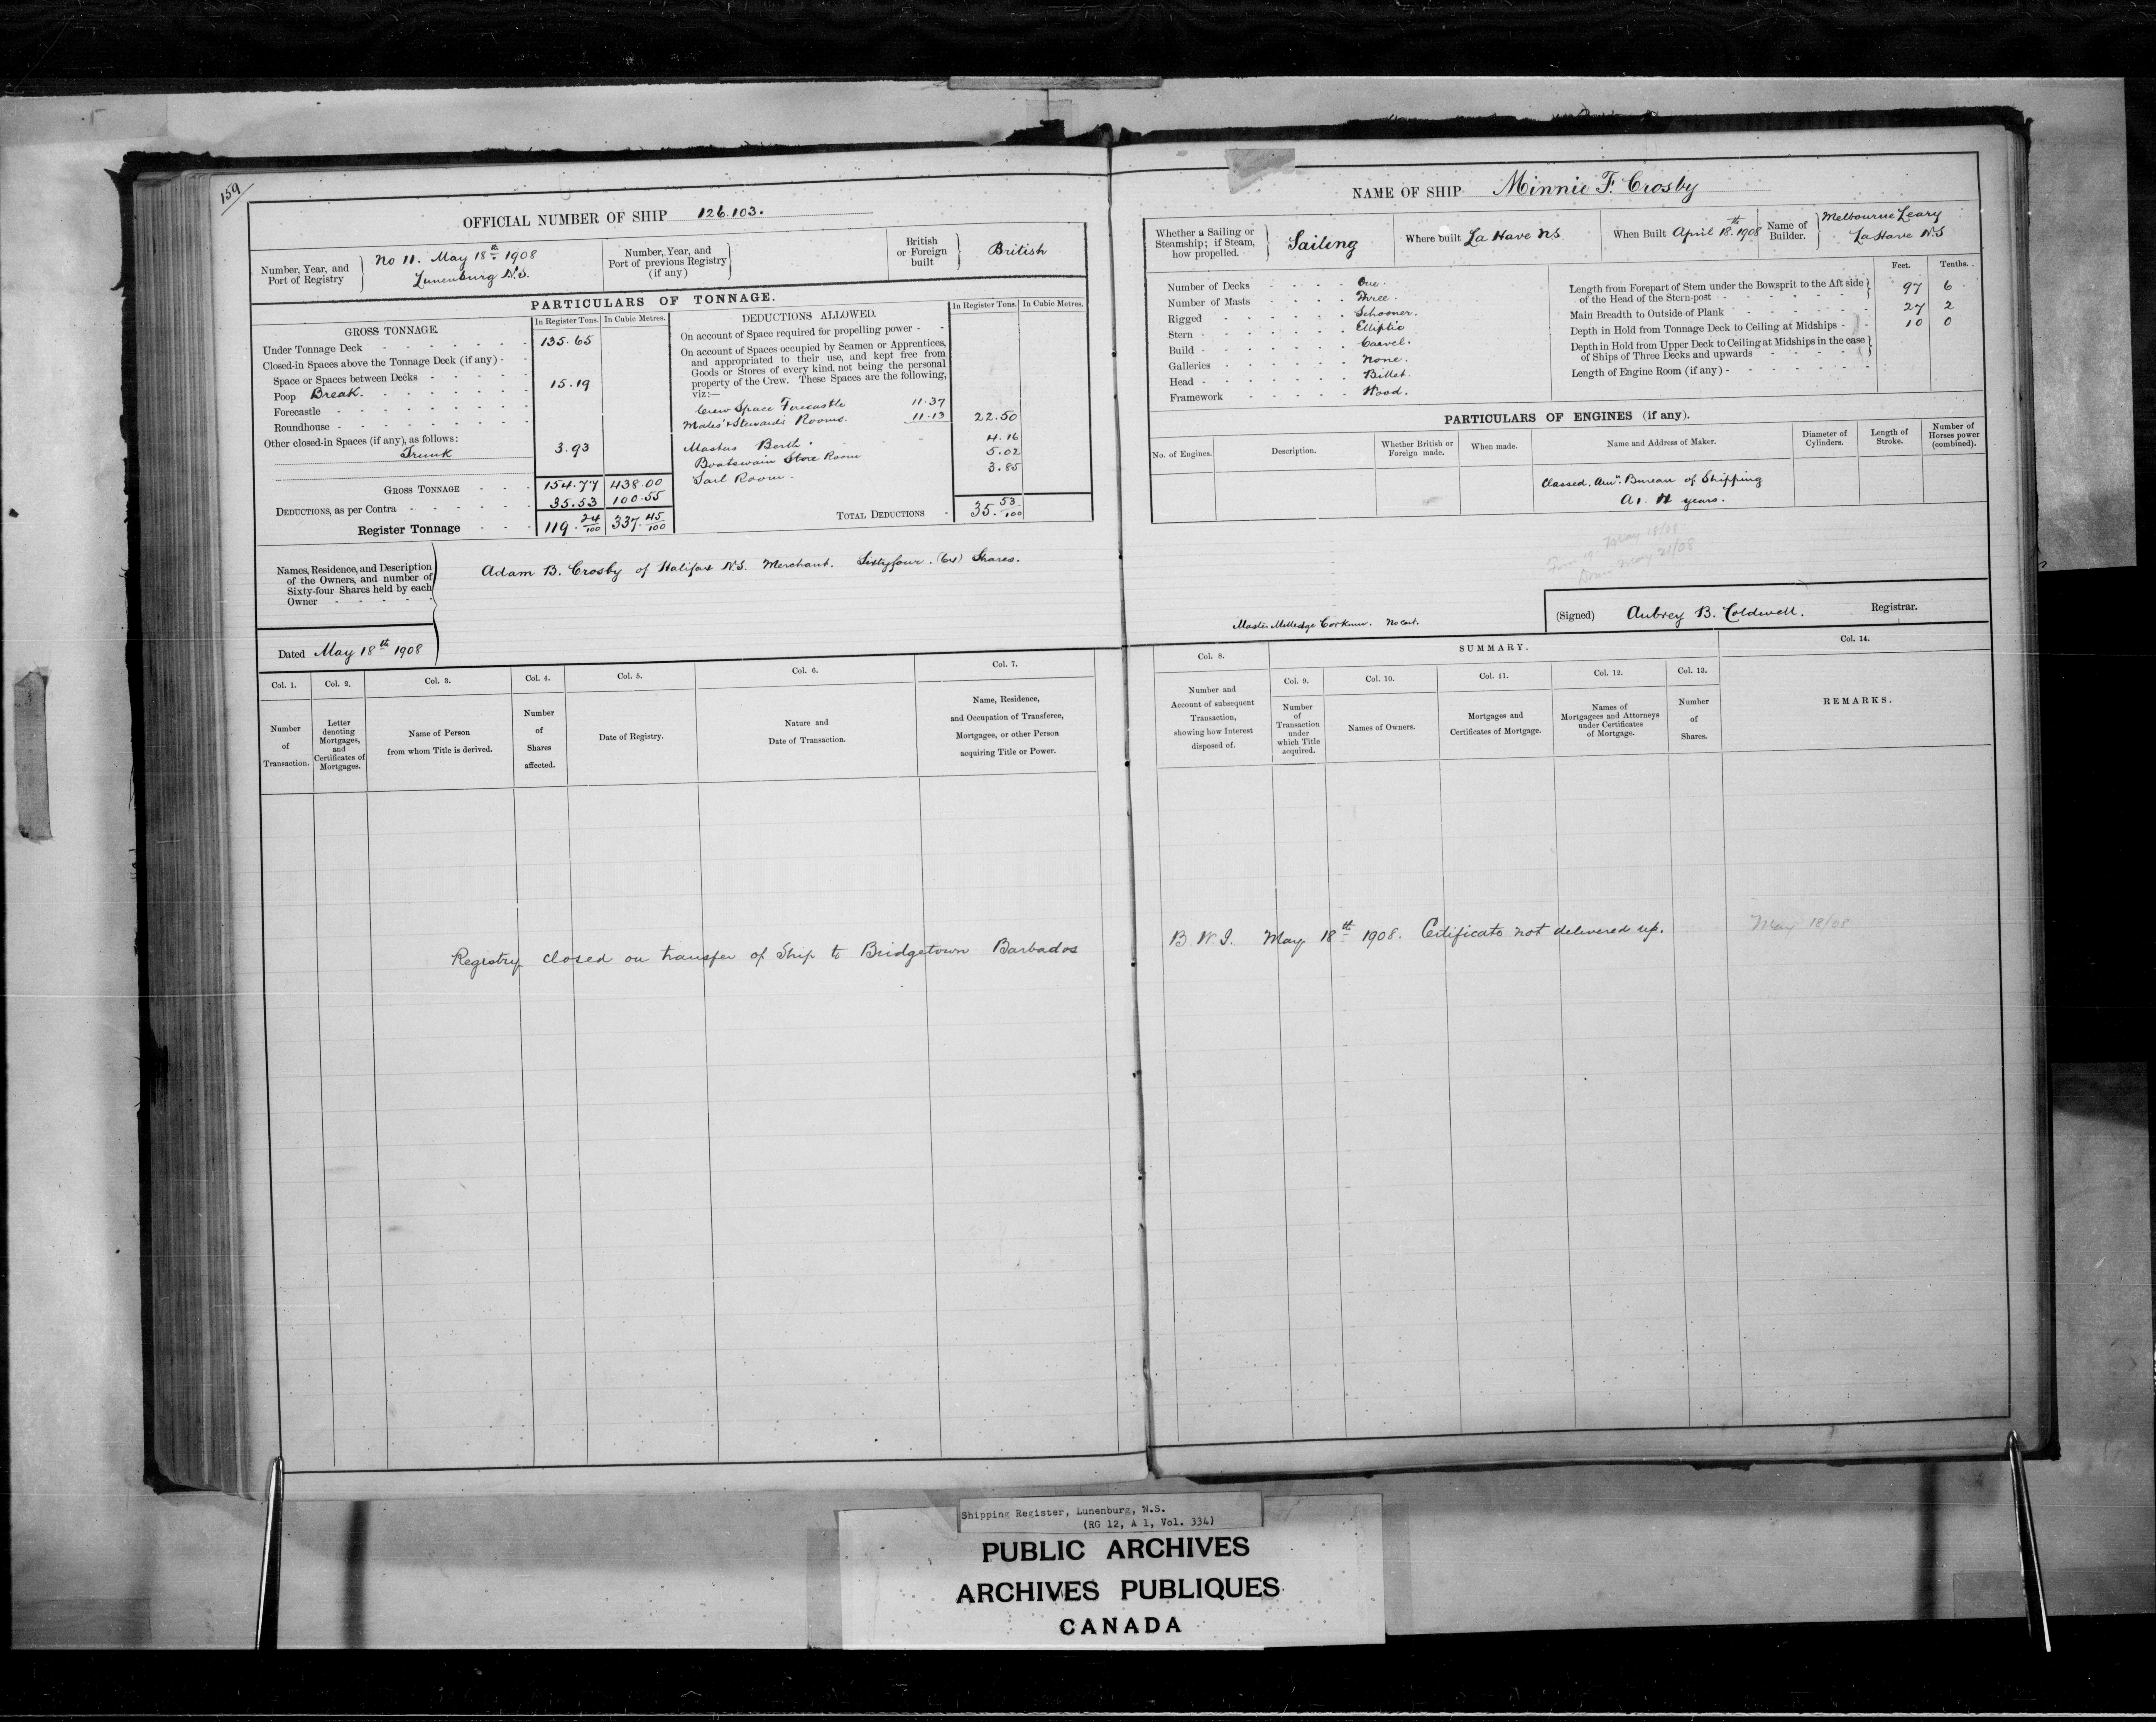 159
OFFICIAL NUMBER OF SHIP 126.103.
Number, Year, and Port of Registry } No 11. May 18th 1908 Lunenburg N.S.
Number, Year, and Port of previous Registry (if any) }
British or Foreign built } British
PARTICULARS OF TONNAGE.
GROSS TONNAGE. In Register Tons. In Cubic Metres.
Under Tonnage Deck 135.65
Closed-in Spaces above the Tonnage Deck (if any) -
Space or Spaces between Decks
Poop Break. 15.19
Forecastle
Roundhouse
Other closed-in Spaces (if any), as follows:
Trunk 3.93
GROSS TONNAGE 154.77 438.00
DEDUCTIONS, as per Contra 35.53 100.55
Register Tonnage 119.24/100 337.45/100
DEDUCTIONS ALLOWED. In Register Tons. In Cubic Metres.
On account of Space required for propelling power -
On account of Spaces occupied by Seamen or Apprentices,
and appropriated to their use, and kept free from
Goods or Stores of every kind, not being the personal
property of the Crew. These Spaces are the following,
viz:—
Crew Space Forecastle 11.37
Mates' & Stewards Rooms. 11.13 22.50
Masters Berth. 4.16
Boatswain Store Room 5.02
Sail Room. 3.85
TOTAL DEDUCTIONS - 35.53/100
Names, Residence, and Description
of the Owners, and number of
Sixty-four Shares held by each
Owner
Adam B. Crosby of Halifax N.S. Merchant. Sixtyfour. (64) Shares.
Dated May 18th 1908
Col. 1. Col. 2. Col. 3. Col. 4. Col. 5. Col. 6. Col. 7.
Number of Transaction.
Letter denoting Mortgages, and Certificates of Mortgages.
Name of Person from whom Title is derived.
Number of Shares affected.
Date of Registry.
Nature and Date of Transaction.
Name, Residence, and Occupation of Transferee, Mortgagee, or other Person acquiring Title or Power.
Registry closed on transfer of Ship to Bridgetown Barbados
NAME OF SHIP Minnie F. Crosby
Whether a Sailing or Steamship; if Steam, how propelled. } Sailing
Where built La Have N.S.
When Built April 18th 1908
Name of Builder. } Melbourne Leary La Have N.S
Number of Decks One.
Number of Masts Three.
Rigged Schooner.
Stern Elliptic
Build Carvel.
Galleries None.
Head Billet.
Framework Wood.
Feet. Tenths.
Length from Forepart of Stem under the Bowsprit to the Aft side of the Head of the Stern-post 97 6
Main Breadth to Outside of Plank 27 2
Depth in Hold from Tonnage Deck to Ceiling at Midships 10 0
Depth in Hold from Upper Deck to Ceiling at Midships in the case of Ships of Three Decks and upwards
Length of Engine Room (if any)
PARTICULARS OF ENGINES (if any).
No. of Engines. Description. Whether British or Foreign made. When made. Name and Address of Maker. Diameter of Cylinders. Length of Stroke. Number of Horses power (combined).
Classed. Amn. Bureau of Shipping
A1. 11 years.
May 18/08
May 21/08
Master Milledge Corkum. No Cert.
(Signed) Aubrey B. Coldwell. Registrar.
Col. 8. SUMMARY. Col. 14.
Col. 9. Col. 10. Col. 11. Col. 12. Col. 13.
Number and Account of subsequent Transaction, showing how Interest disposed of.
Number of Transaction under which Title acquired.
Names of Owners.
Mortgages and Certificates of Mortgage.
Names of Mortgagees and Attorneys under Certificates of Mortgage.
Number of Shares.
REMARKS.
B.W.I. May 18th 1908. Certificate not delivered up. May 18/08
Shipping Register, Lunenburg, N.S.
(RG 12, A 1, Vol. 334)
PUBLIC ARCHIVES
ARCHIVES PUBLIQUES
CANADA